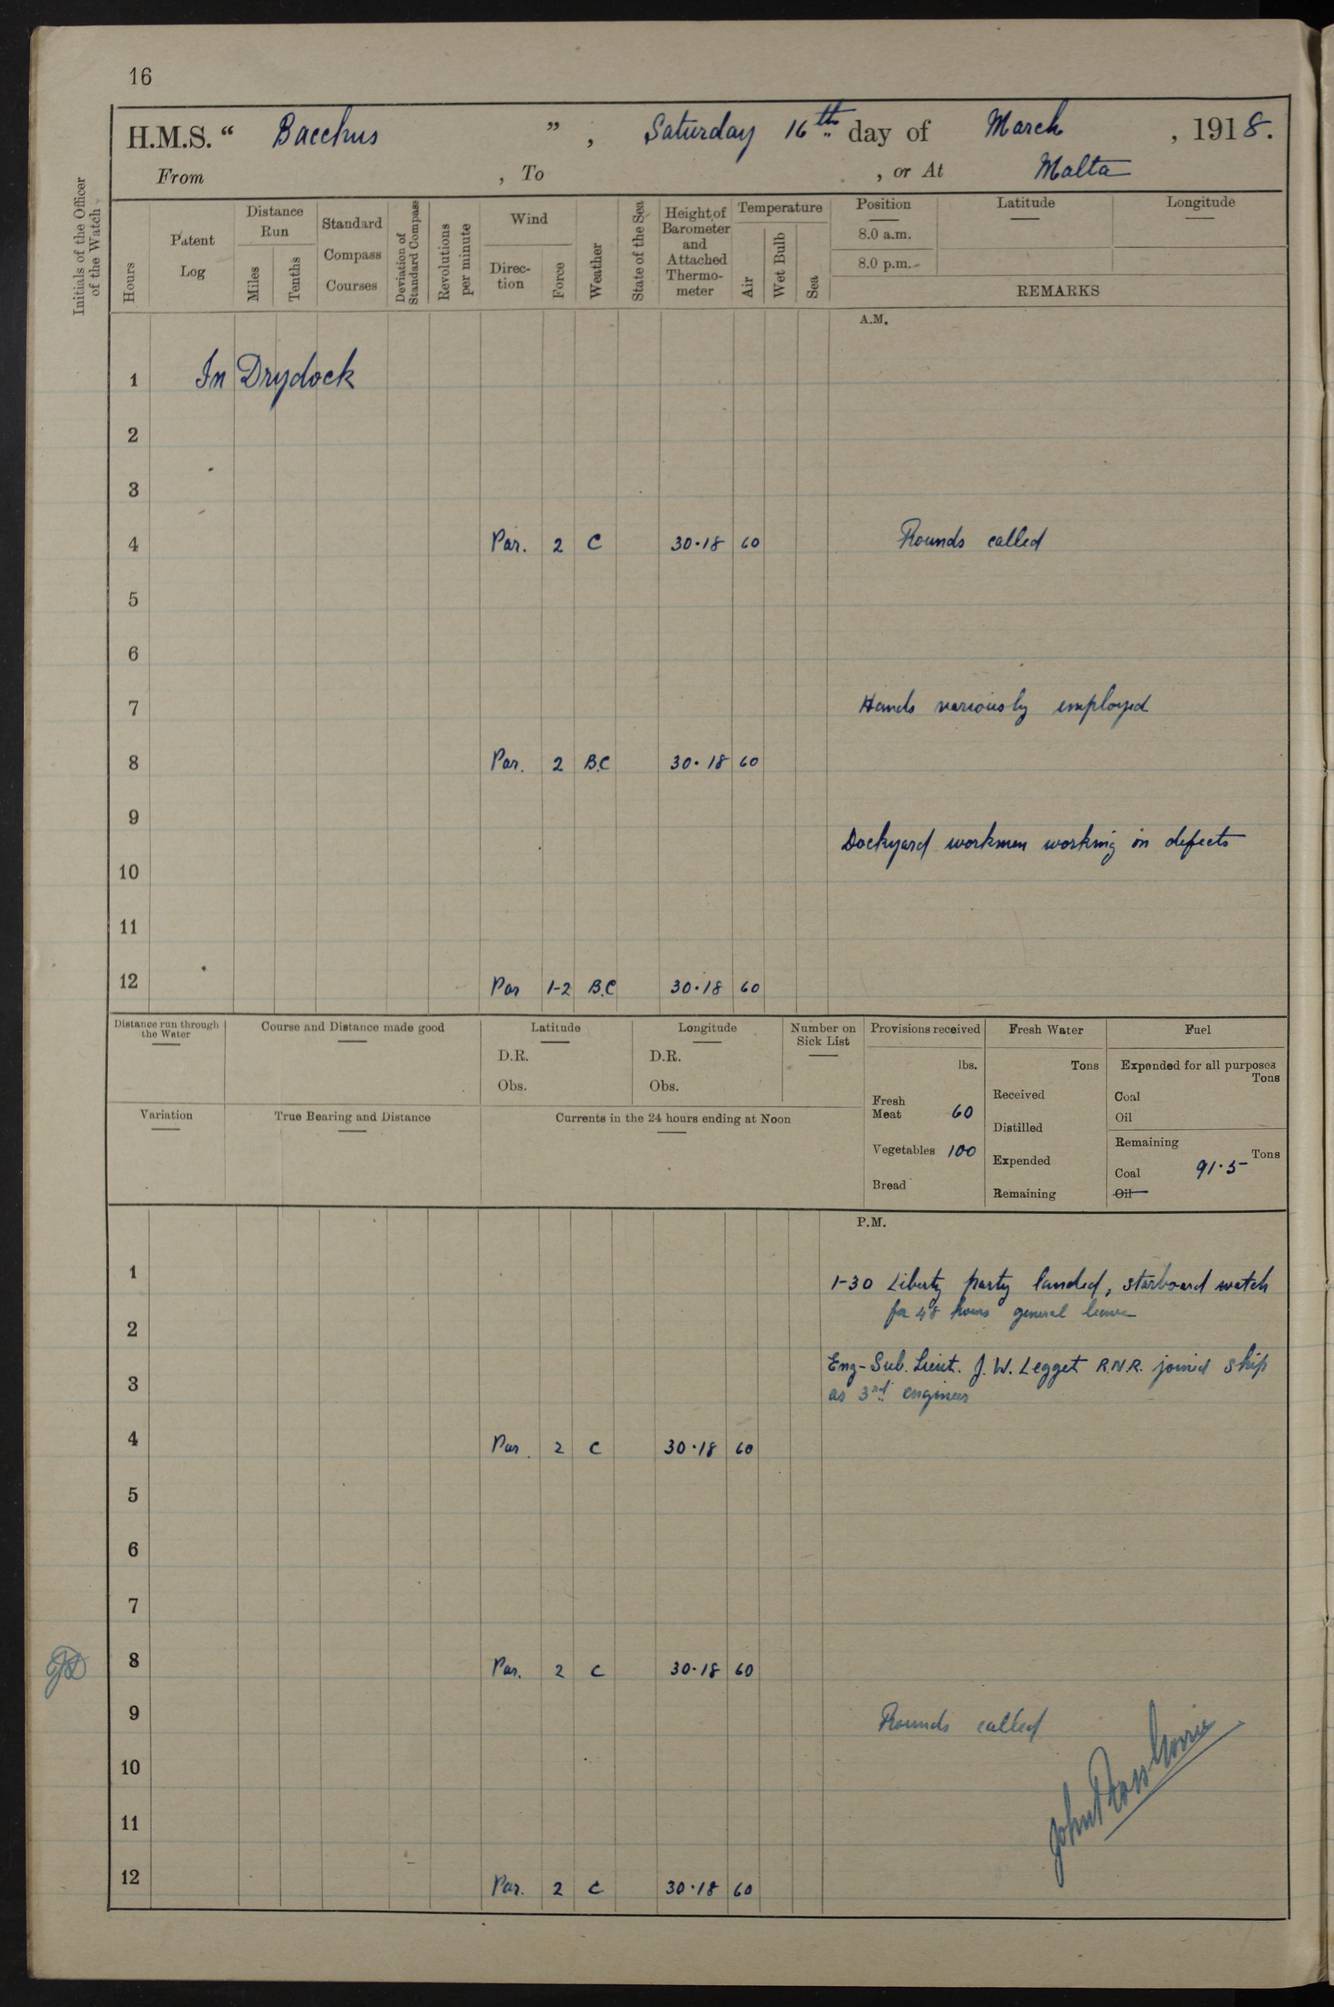 16
H.M.S. “ Bacchus ” , Saturday 16th day of March , 1918.
From , To , or At Malta
Initials of the Officer of the Watch
Hours
Patent Log
Distance Run
Miles
Tenths
Standard Compass Courses
Deviation of Standard Compass
Revolutions per minute
Wind
Direc-tion
Force
Weather
State of the Sea
Height of Barometer and Attached Thermo-meter
Temperature
Air
Wet Bulb
Sea
Position Latitude Longitude
8.0 a.m.
8.0 p.m.
REMARKS
A.M.
1 In Drydock
2
3
4 Par. 2 C 30·18 60 Rounds called
5
6
7 Hands variously employed
8 Par. 2 B.C 30·18 60
9
Dockyard workmen working on defects
10
11
12 Par 1-2 B.C 30·18 60
Distance run through the Water
Course and Distance made good
Latitude
D.R.
Obs.
Longitude
D.R.
Obs.
Number on Sick List
Variation
True Bearing and Distance
Currents in the 24 hours ending at Noon
Provisions received
lbs.
Fresh Meat 60
Vegetables 100
Bread
Fresh Water
Tons
Received
Distilled
Expended
Remaining
Fuel
Expended for all purposes
Tons
Coal
Oil
Remaining
Tons
Coal 91·5
Oil
P.M.
1 1-30 Liberty party landed, starboard watch
for 48 hours general leave
2
Eng-Sub. Lieut. J. W. Legget R.N.R. joined ship
3 as 3rd engineer
4 Par. 2 C 30·18 60
5
6
7
8 Par. 2 C 30·18 60
9 Rounds called
10
11
12 Par. 2 C 30·18 60
John Ross